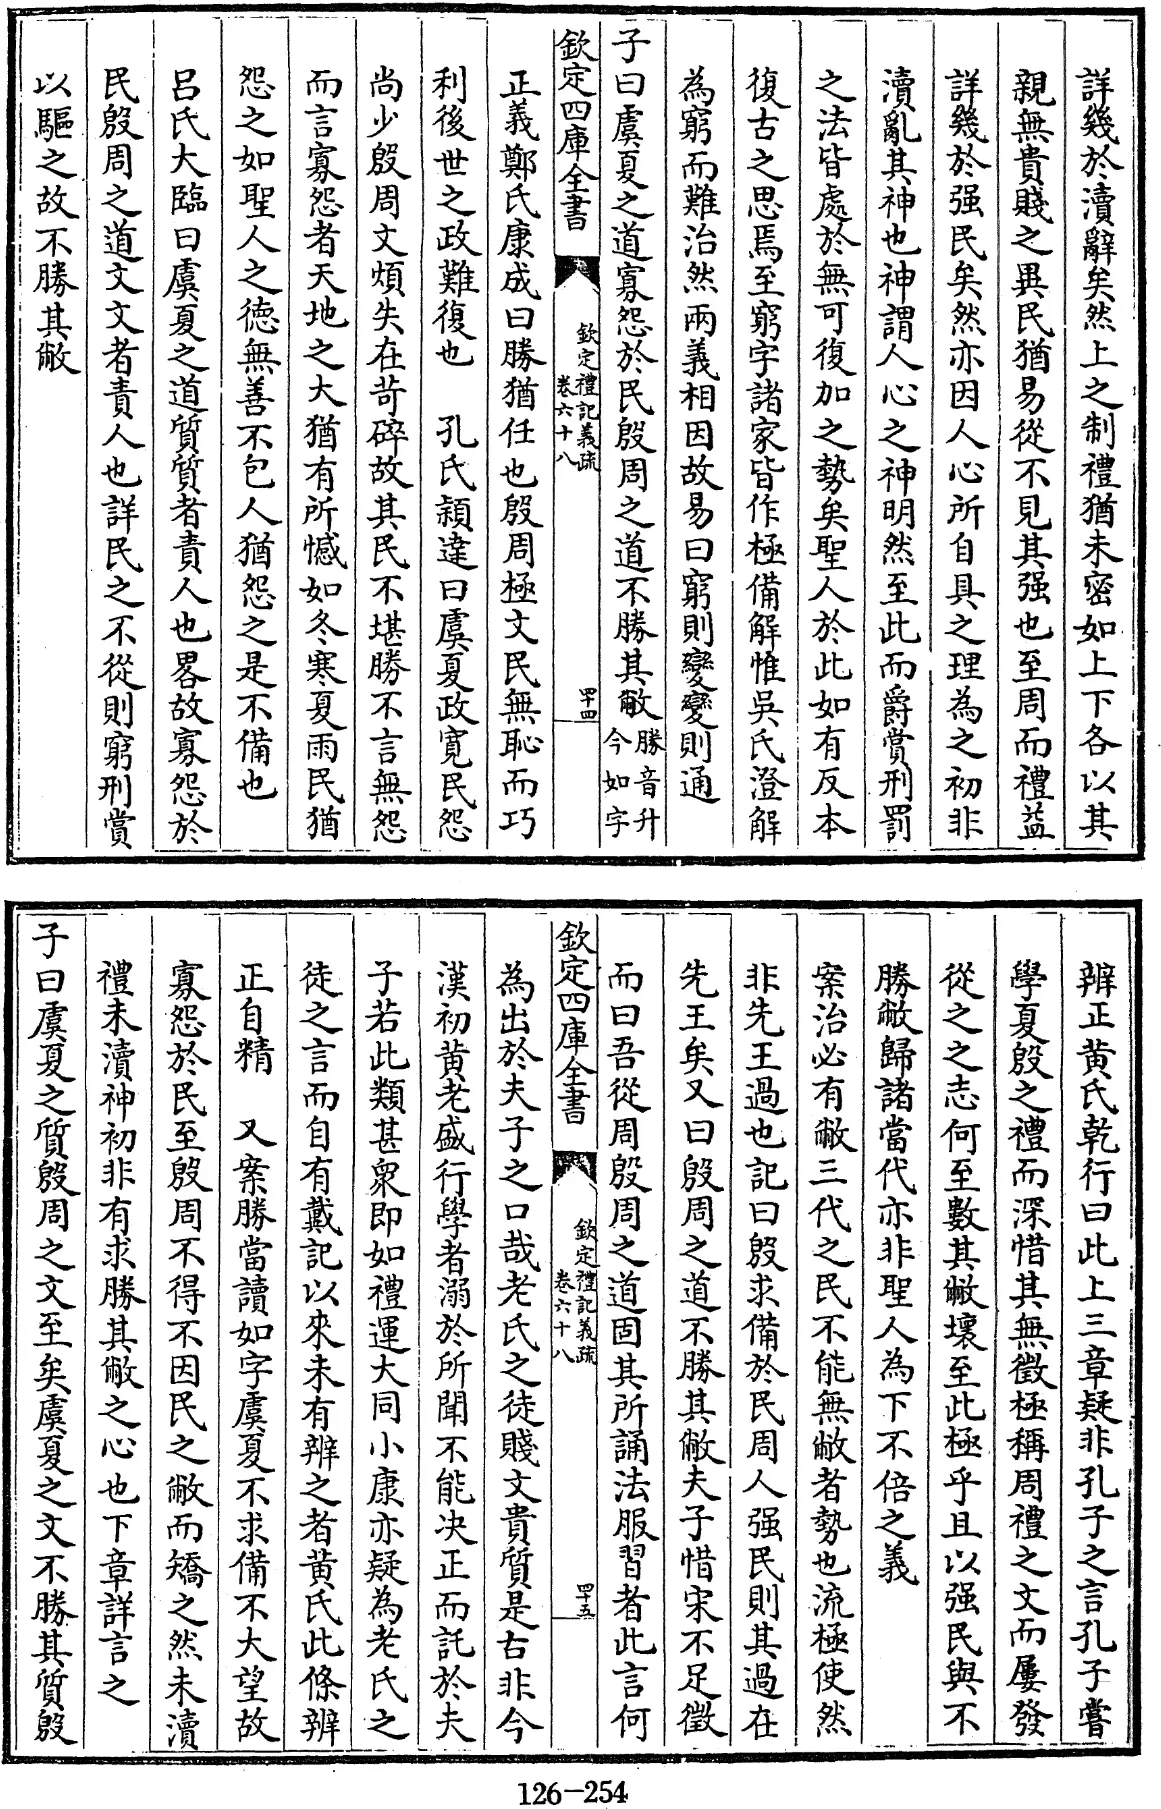 詳幾於瀆辭矣然上之制禮猶未密如上下各以其
親無貴賤之異民猶易從不見其强也至周而禮益
詳幾於强民矣然亦因人心所自具之理為之初非
瀆亂其神也神謂人心之神明然至此而爵賞刑罰
之法皆處於無可復加之勢矣聖人於此如有反本
復古之思焉至窮字諸家皆作極備解惟吳氏澄解
為窮而難治然兩義相因故易曰窮則變變則通
子曰虞夏之道寡怨於民殷周之道不勝其敝勝音升
今如字
欽定四庫全書
欽定禮記義疏
卷六十八
四十四
正義鄭氏康成曰勝猶任也殷周極文民無恥而巧
利後世之政難復也 孔氏穎達曰虞夏政寬民怨
尚少殷周文煩失在苛碎故其民不堪勝不言無怨
而言寡怨者天地之大猶有所憾如冬寒夏雨民猶
怨之如聖人之德無善不包人猶怨之是不備也
呂氏大臨曰虞夏之道質質者責人也畧故寡怨於
民殷周之道文文者責人也詳民之不從則窮刑賞
以驅之故不勝其敝
辨正黄氏乾行曰此上三章疑非孔子之言孔子嘗
學夏殷之禮而深惜其無徵極稱周禮之文而屢發
從之之志何至數其敝壞至此極乎且以强民與不
勝敝歸諸當代亦非聖人為下不倍之義
案治必有敝三代之民不能無敝者勢也流極使然
非先王過也記曰殷求備於民周人强民則其過在
先王矣又曰殷周之道不勝其敝夫子惜宋不足徵
而曰吾從周殷周之道固其所誦法服習者此言何
欽定四庫全書
欽定禮記義疏
卷六十八
四十五
為出於夫子之口哉老氏之徒賤文貴質是古非今
漢初黄老盛行學者溺於所聞不能决正而託於夫
子若此類甚衆即如禮運大同小康亦疑為老氏之
徒之言而自有戴記以來未有辨之者黄氏此條辨
正自精 又案勝當讀如字虞夏不求備不大望故
寡怨於民至殷周不得不因民之敝而矯之然未瀆
禮未瀆神初非有求勝其敝之心也下章詳言之
子曰虞夏之質殷周之文至矣虞夏之文不勝其質殷
126-254